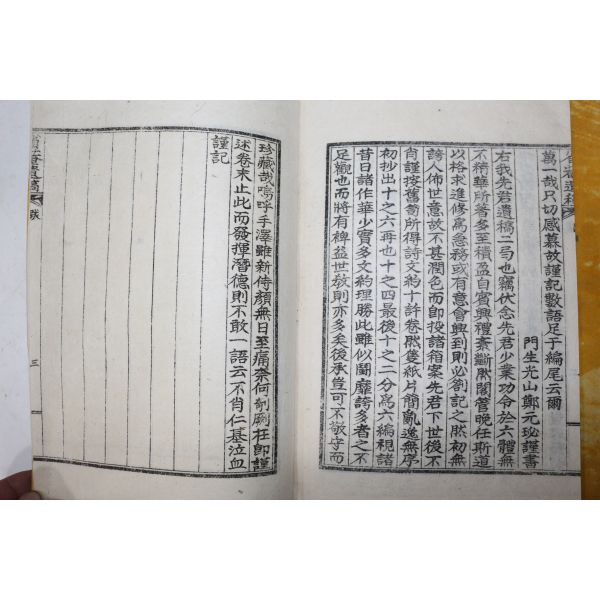 萬一哉只切感慕故謹記數語足于編尾云爾
門生光山鄭元珌謹書
右我先君遺稿二弓也竊伏念先君少業功令於六體無
不稱華所著多至積盈自賓興禮紊斷然閣筐晩任斯道
以格求進修爲急務或有意會興到則必劄記之然初無
誇人佈世意故不甚潤色而卽投諸箱案先君下世後不
肖謹按舊笥所得詩文約十許卷然隻紙片簡亂逸無序
初抄出十之六再也十之四最後十之二分爲六編視諸
昔日諸作華少實多文約理勝此雖似鬪靡誇多者之不
足觀也而將有裨益世敎則亦多矣後承豈可不敬守而
珍藏哉嗚呼手澤雖新侍顔無日至痛柰何剞劂在卽謹
述卷末止此而發揮潛德則不敢一語云不肖仁基泣血
謹記
跋
三